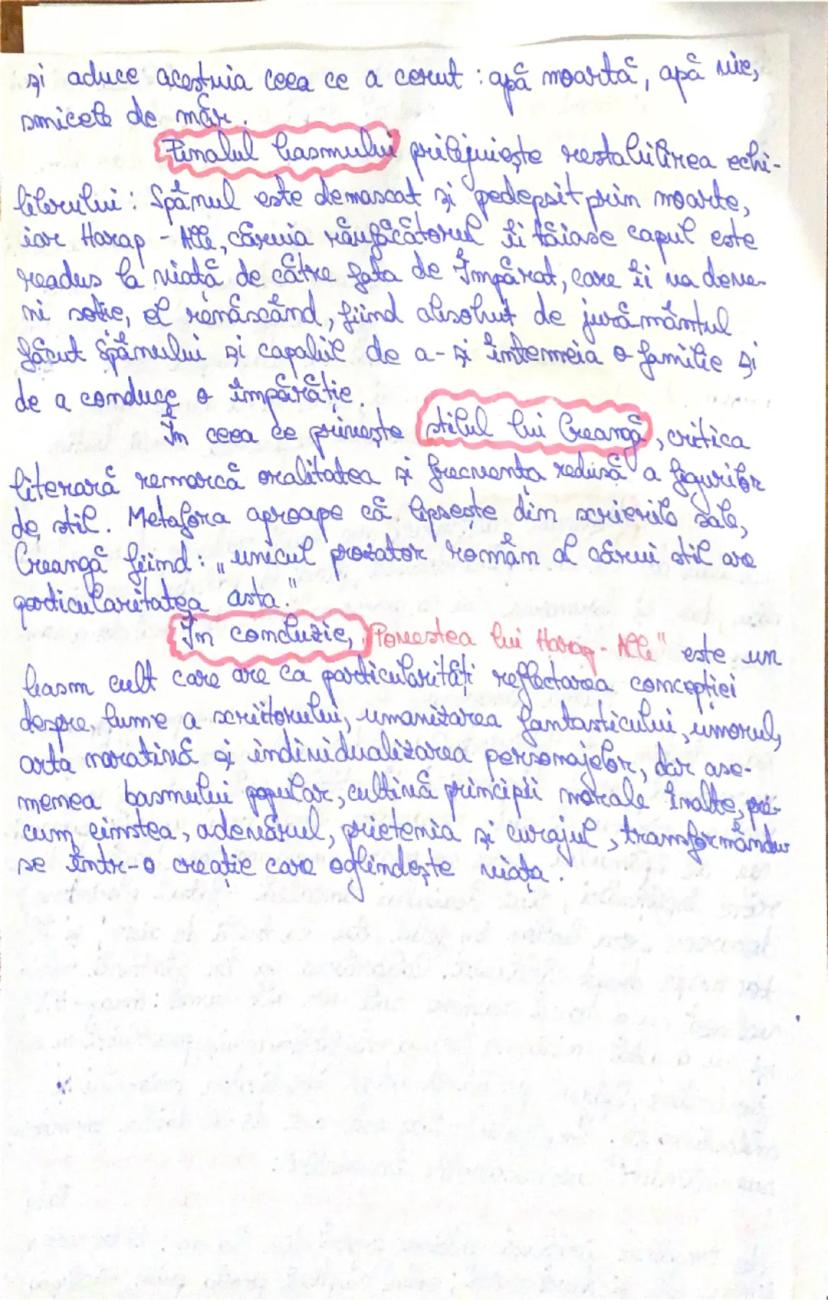 și aduce acestuia ceea ce a cerut : apă moartă, apă vie,
smicele de măr.
Finalul basmului prilejuiește restabilirea echi-
librului : Spânul este demascat și pedepsit prin moarte,
iar Harap - Alb, căruia răufăcătorul îi tăiase capul este
readus la viață de către fata de Împărat, care îi va deve-
ni soție, el renăscând, fiind absolvit de jurământul
făcut Spânului și capabil de a-și întemeia o familie și
de a conduce o împărăție.
În ceea ce privește stilul lui Creangă, critica
literară remarcă oralitatea și frecvența redusă a figurilor
de stil. Metafora aproape că lipsește din scrierile sale,
Creangă fiind : „unicul prozator român al cărui stil are
particularitatea asta."
În concluzie, „Povestea lui Harap - Alb" este un
basm cult care are ca particularități reflectarea concepției
despre lume a scriitorului, umanizarea fantasticului, umorul,
arta narativă și individualizarea personajelor, dar ase-
menea basmului popular, cultivă principii morale înalte, pre-
cum cinstea, adevărul, prietenia și curajul, transformându-
se într-o creație care oglindește viața.